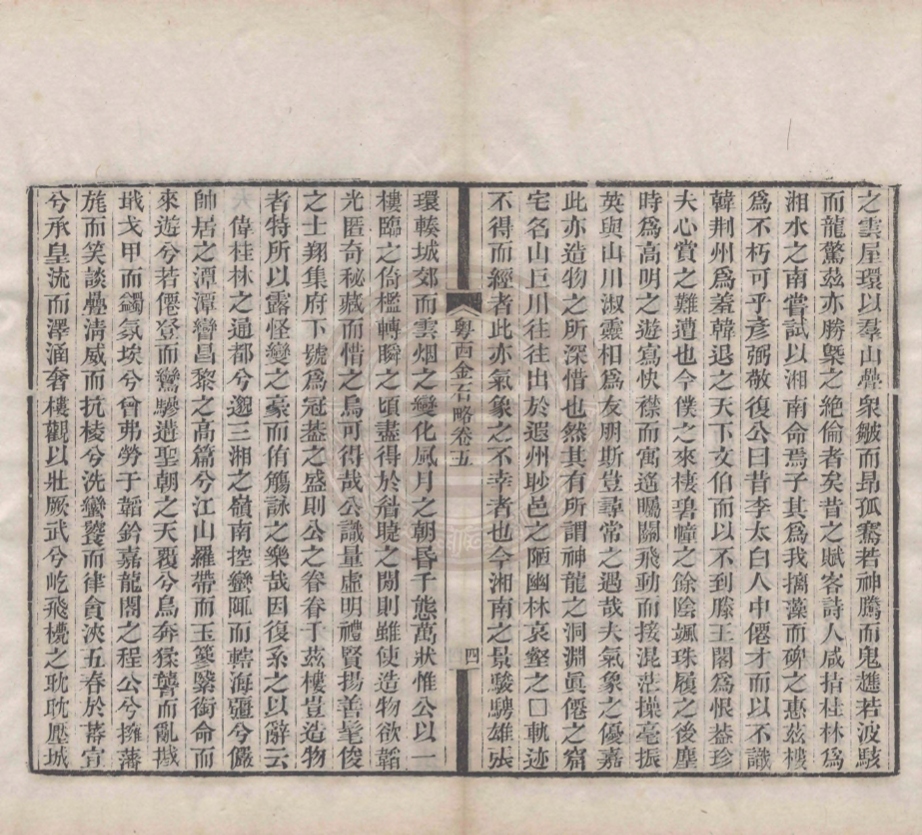 之雲屋環以羣山疊衆皺而昂孤騫若神騰而鬼趭若波駭
而龍驚茲亦勝槩之絶倫者矣昔之賦客詩人咸指桂林爲
湘水之南嘗試以湘南命焉子其爲我摛藻而碑之惠茲樓
爲不朽可乎彦弼敬復公曰昔李太白人中僊才而以不識
韓荆州爲羞韓退之天下文伯而以不到滕王閣爲恨葢珍
夫心賞之難遭也今僕之來棲碧幢之餘陰颯珠履之後塵
時爲高明之遊寫快襟而寓遥矚闢飛動而接混茫操毫振
英與山川淑靈相爲友朋斯豈尋常之遇哉夫氣象之優嘉
此亦造物之所深惜也然其有所謂神龍之洞淵眞僊之窟
宅名山巨川往往出於遐州眇邑之陋幽林哀壑之囗軌迹
不得而經者此亦氣象之不幸者也今湘南之景駿騁雄張
粤西金石略卷五
四
環轃城郊而雲烟之變化風月之朝昏千態萬狀惟公以一
樓臨之倚檻轉瞬之頃盡得於㫺曉之閒則雖使造物欲韜
光匿奇秘藏而惜之烏可得哉公識量虚明禮賢揚善髦俊
之士翔集府下號爲冠葢之盛則公之眷眷于茲樓豈造物
者特所以露怪變之豪而侑觴詠之樂哉因復系之以辭云
偉桂林之通都兮邈三湘之嶺南控蠻陬而轄海疆兮儼
帥居之潭潭巒昌黎之高篇兮江山羅帶而玉篸緊銜命而
來遊兮若僊登而鸞驂遘聖朝之天覆兮鳥奔猱讋而亂戡
戢戈甲而蠲氛埃兮曾弗勞于韜鈐嘉龍閣之程公兮擁藩
旄而笑談疊清威而抗棱兮洗蠻饕而律貪浹五春於蕃宣
兮承皇流而澤涵奢樓觀以壯厥武兮屹飛櫋之耽耽壓城